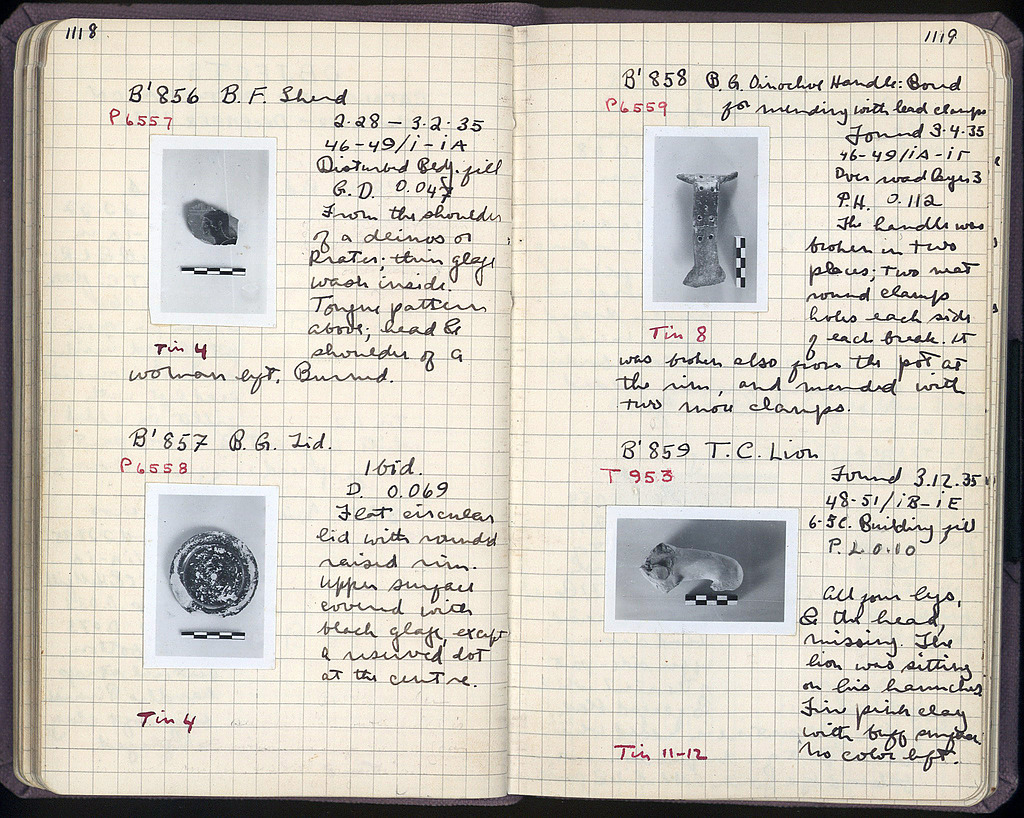 1118
B'856 B.F. Sherd
P6557
2.28 – 3.2.35
46-49/i-iA
Disturbed Bldg. fill
G.D. 0.047
From the shoulder
of a deinos or
krater; thin glaze
wash inside.
Tongue pattern
above; head &
shoulder of a
woman left. Burned.
Tin 4
B'857 B.G. Lid.
P6558
Ibid.
D. 0.069
Flat circular
lid with round
raised rim.
Upper surface
covered with
black glaze, except
a reserved dot
at the centre.
Tin 4
1119
B'858 B.G. Oinochoe Handle: Bored
for mending with lead clamps
P6559
Found 3.4.35
46-49/iA-iΓ
Over road layer 3
P.H. 0.112
The handle was
broken in two
places; two neat
round clamp
holes each side
of each break. It
was broken also from the pot at
the rim, and mended with
two more clamps.
Tin 8
B'859 T.C. Lion
T 953
Found 3.12.35
48-51/iB-iE
6-5C. Building fill
P.L. 0.10
All four legs,
& the head,
missing. The
lion was sitting
on his haunches
Fine pink clay
with buff surface
No color left.
Tin 11-12